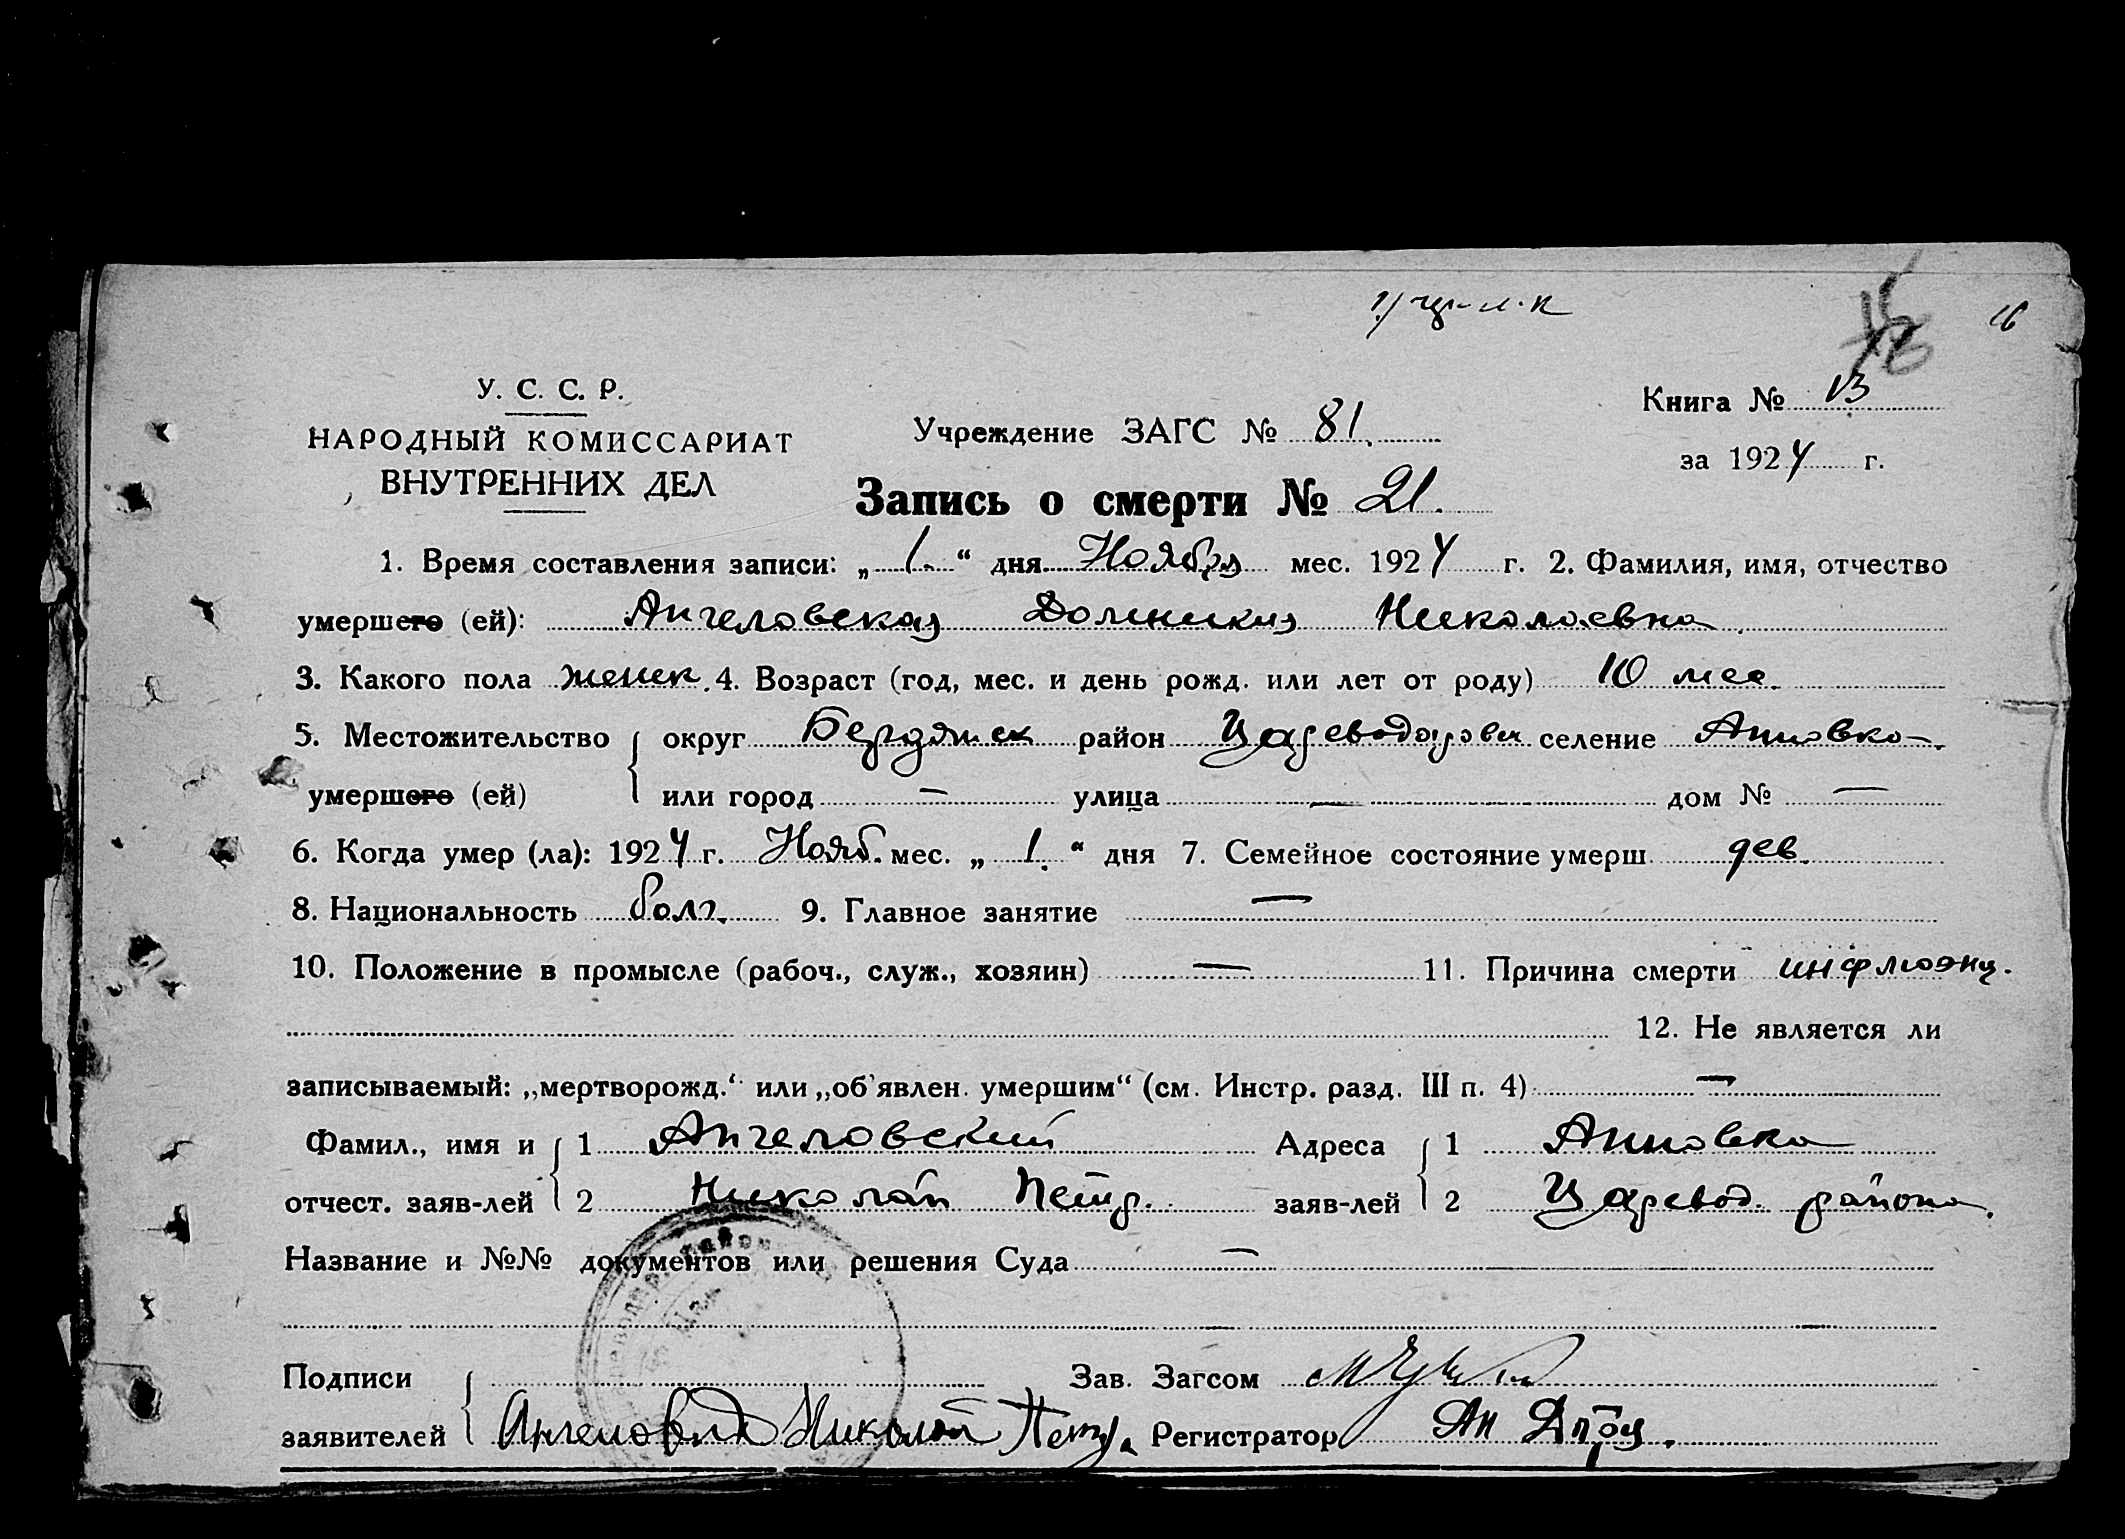 16
У. С. С. Р.
НАРОДНЫЙ КОМИССАРИАТ
ВНУТРЕННИХ ДЕЛ
Учреждение ЗАГС № 81.
Книга № 13
за 1924 г.
Запись о смерти № 21.
1. Время составления записи: „ 1. “ дня Ноября мес. 1924 г. 2. Фамилия, имя, отчество
умершего (ей): Ангеловская Домникия Николаевна
3. Какого пола женск. 4. Возраст (год, мес. и день рожд. или лет от роду) 10 мес.
5. Местожительство округ Бердянск район Цареводаровск селение Анновка
умершего (ей) или город — улица — дом № —
6. Когда умер (ла): 1924 г. Нояб. мес. „ 1. “ дня 7. Семейное состояние умерш. дев.
8. Национальность болг. 9. Главное занятие —
10. Положение в промысле (рабоч., служ., хозяин) — 11. Причина смерти инфлюэнц.
12. Не является ли
записываемый: „мертворожд.“ или „об'явлен. умершим“ (см. Инстр. разд. III п. 4) —
Фамил., имя и 1 Ангеловский Адреса 1 Анновка
отчест. заяв-лей 2 Николай Петр. заяв-лей 2 Царевод. района.
Название и №№ документов или решения Суда —
Подписи Зав. Загсом
заявителей Ангеловский Николай Петр. Регистратор